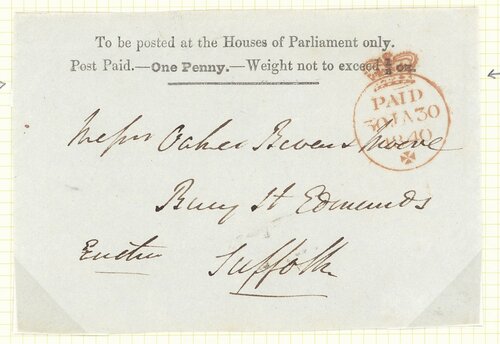 To be posted at the Houses of Parliament only.
Post Paid.—One Penny.—Weight not to exceed ½ oz.
PAID
30 JA 30
1840
Messrs Oakes Bevan & Moore
Bury St Edmunds
Suffolk